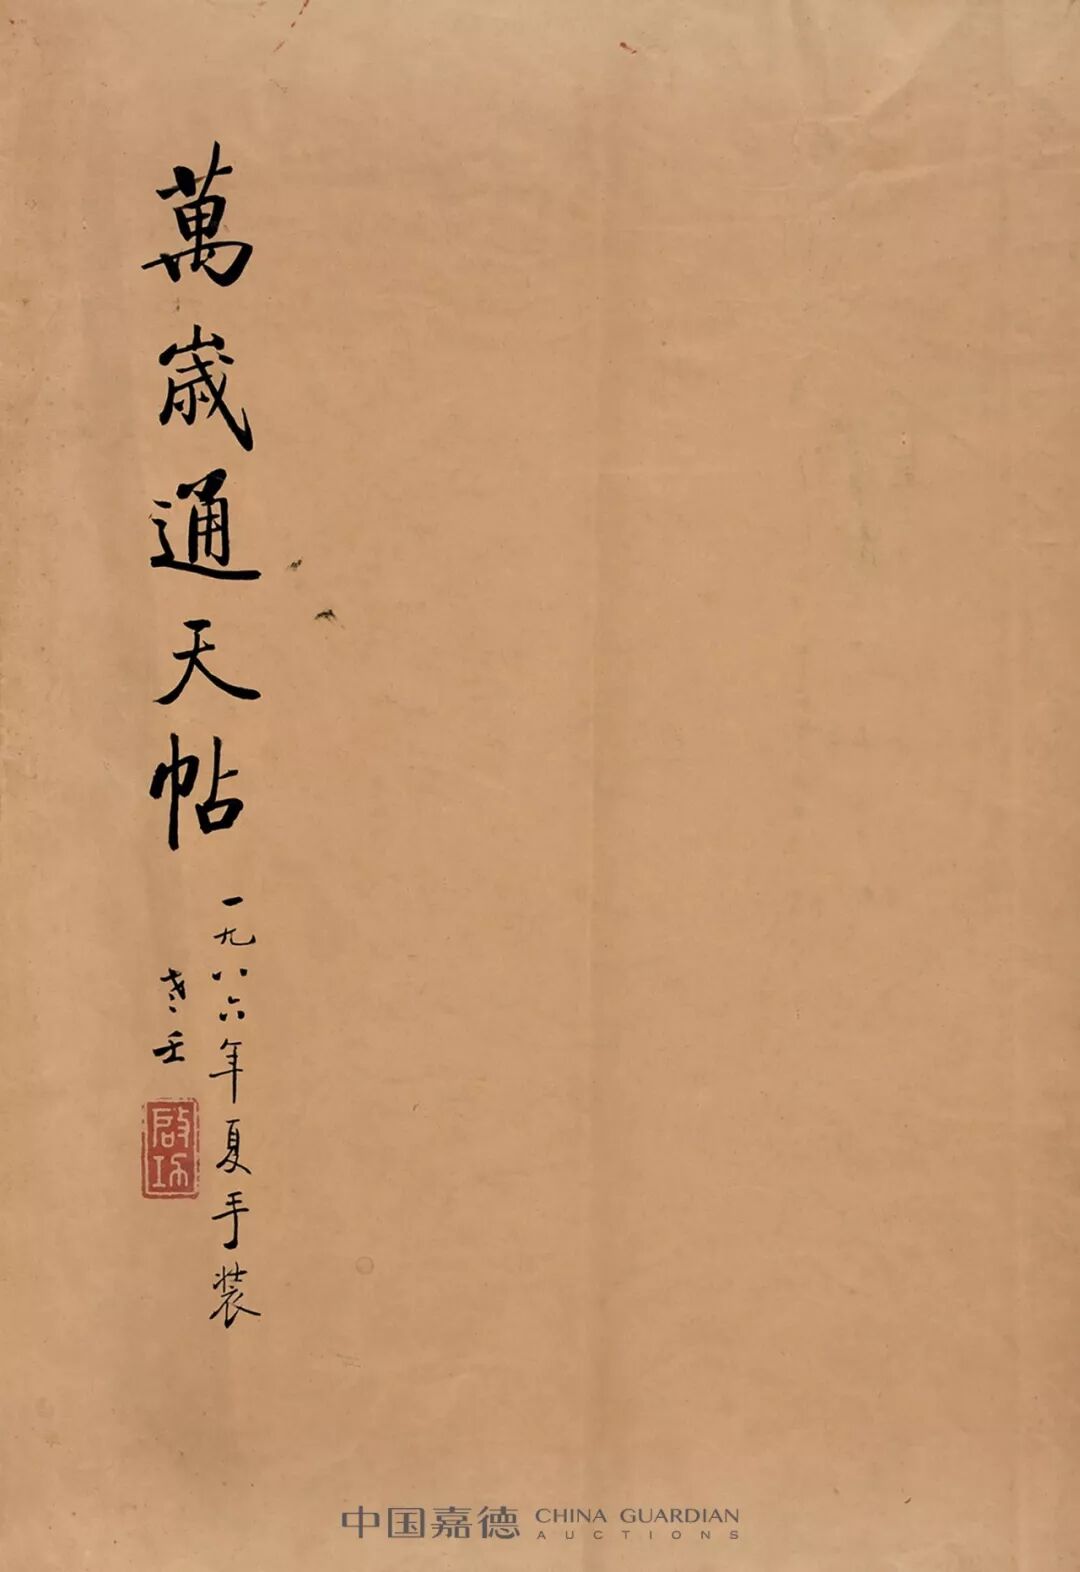 萬歲通天帖
一九八六年夏手装
老壬
啟功
中国嘉德 CHINA GUARDIAN
AUCTIONS